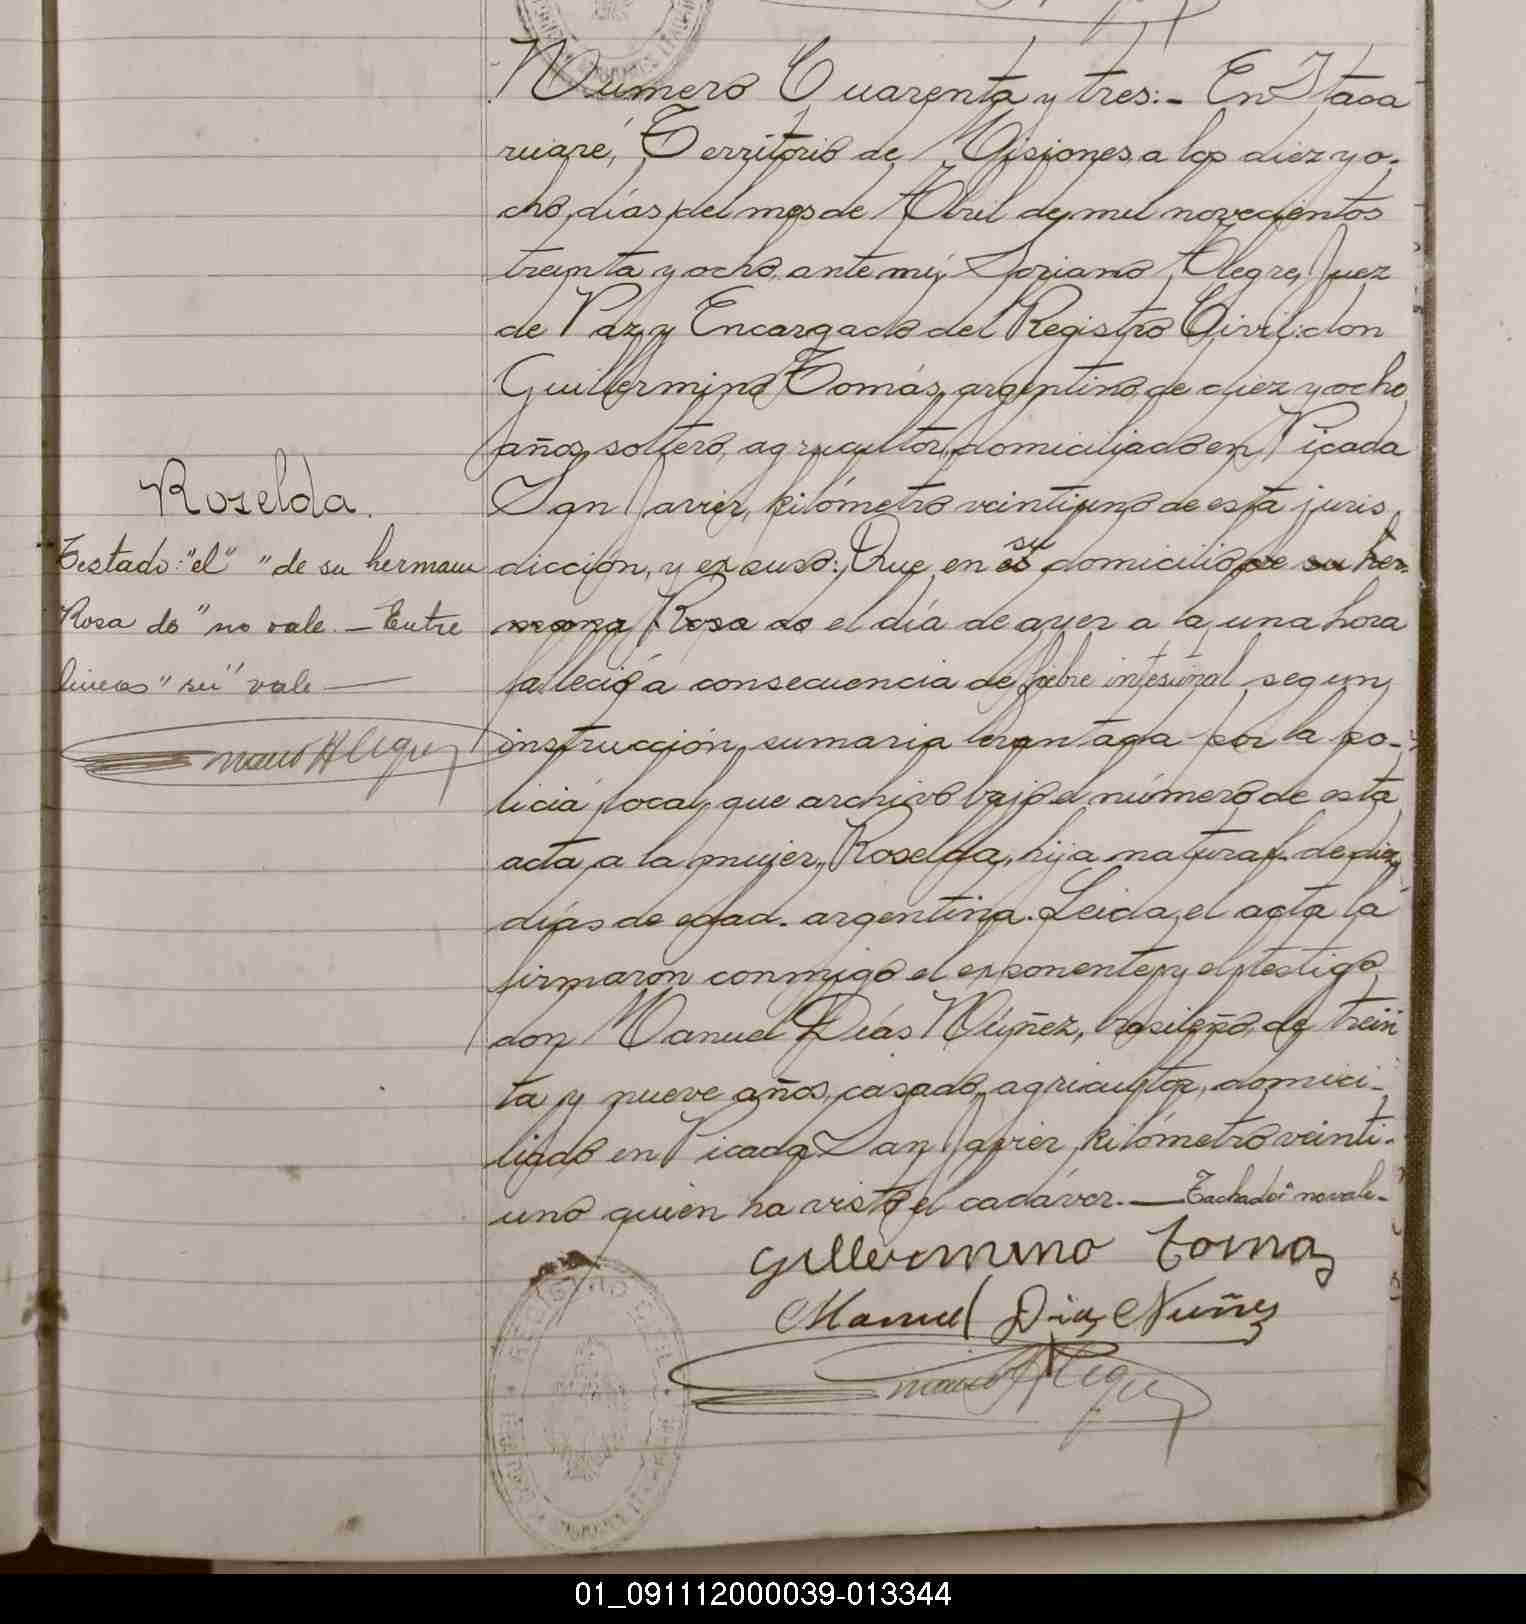 Número Cuarenta y tres:- En Itaca
ruaré, Territorio de Misiones a los diez y o-
cho, días del mes de Abril de mil novecientos
treinta y ocho, ante mí, Soriano Alegre, Juez
de Paz y Encargado del Registro Civil: don
Guillermino Tomás, argentino, de diez y ocho
años, soltero, agricultor, domiciliado en Picada
San Javier, kilómetro veintiuno de esta juris
dicción, y expuso: Que, en su domicilio de su her-
mana Rosa do el día de ayer a la una hora
falleció a consecuencia de fiebre intestinal segun,
instrucción, sumaria levantada por la po-
licia local, que archivo bajo el número de esta
acta, a la mujer, Roselda, hija natural de diez
días de edad. argentina. Leida, el acta la
firmaron conmigo el exponente, y el testigo
don Manuel Días Núñez, brasileño, de trein
ta y nueve años, casado, agricultor, domici-
liado en Picada San Javier, kilómetro veinti-
uno quien ha visto el cadáver.— Tachado: no vale-
Roselda.
Testado: "el" "de su hermana
Rosa do" no vale.— Entre
lineas "su" vale—
Guillermino Tomas
Manuel Dias Nuñes
REGISTRO CIVIL
01_091112000039-013344